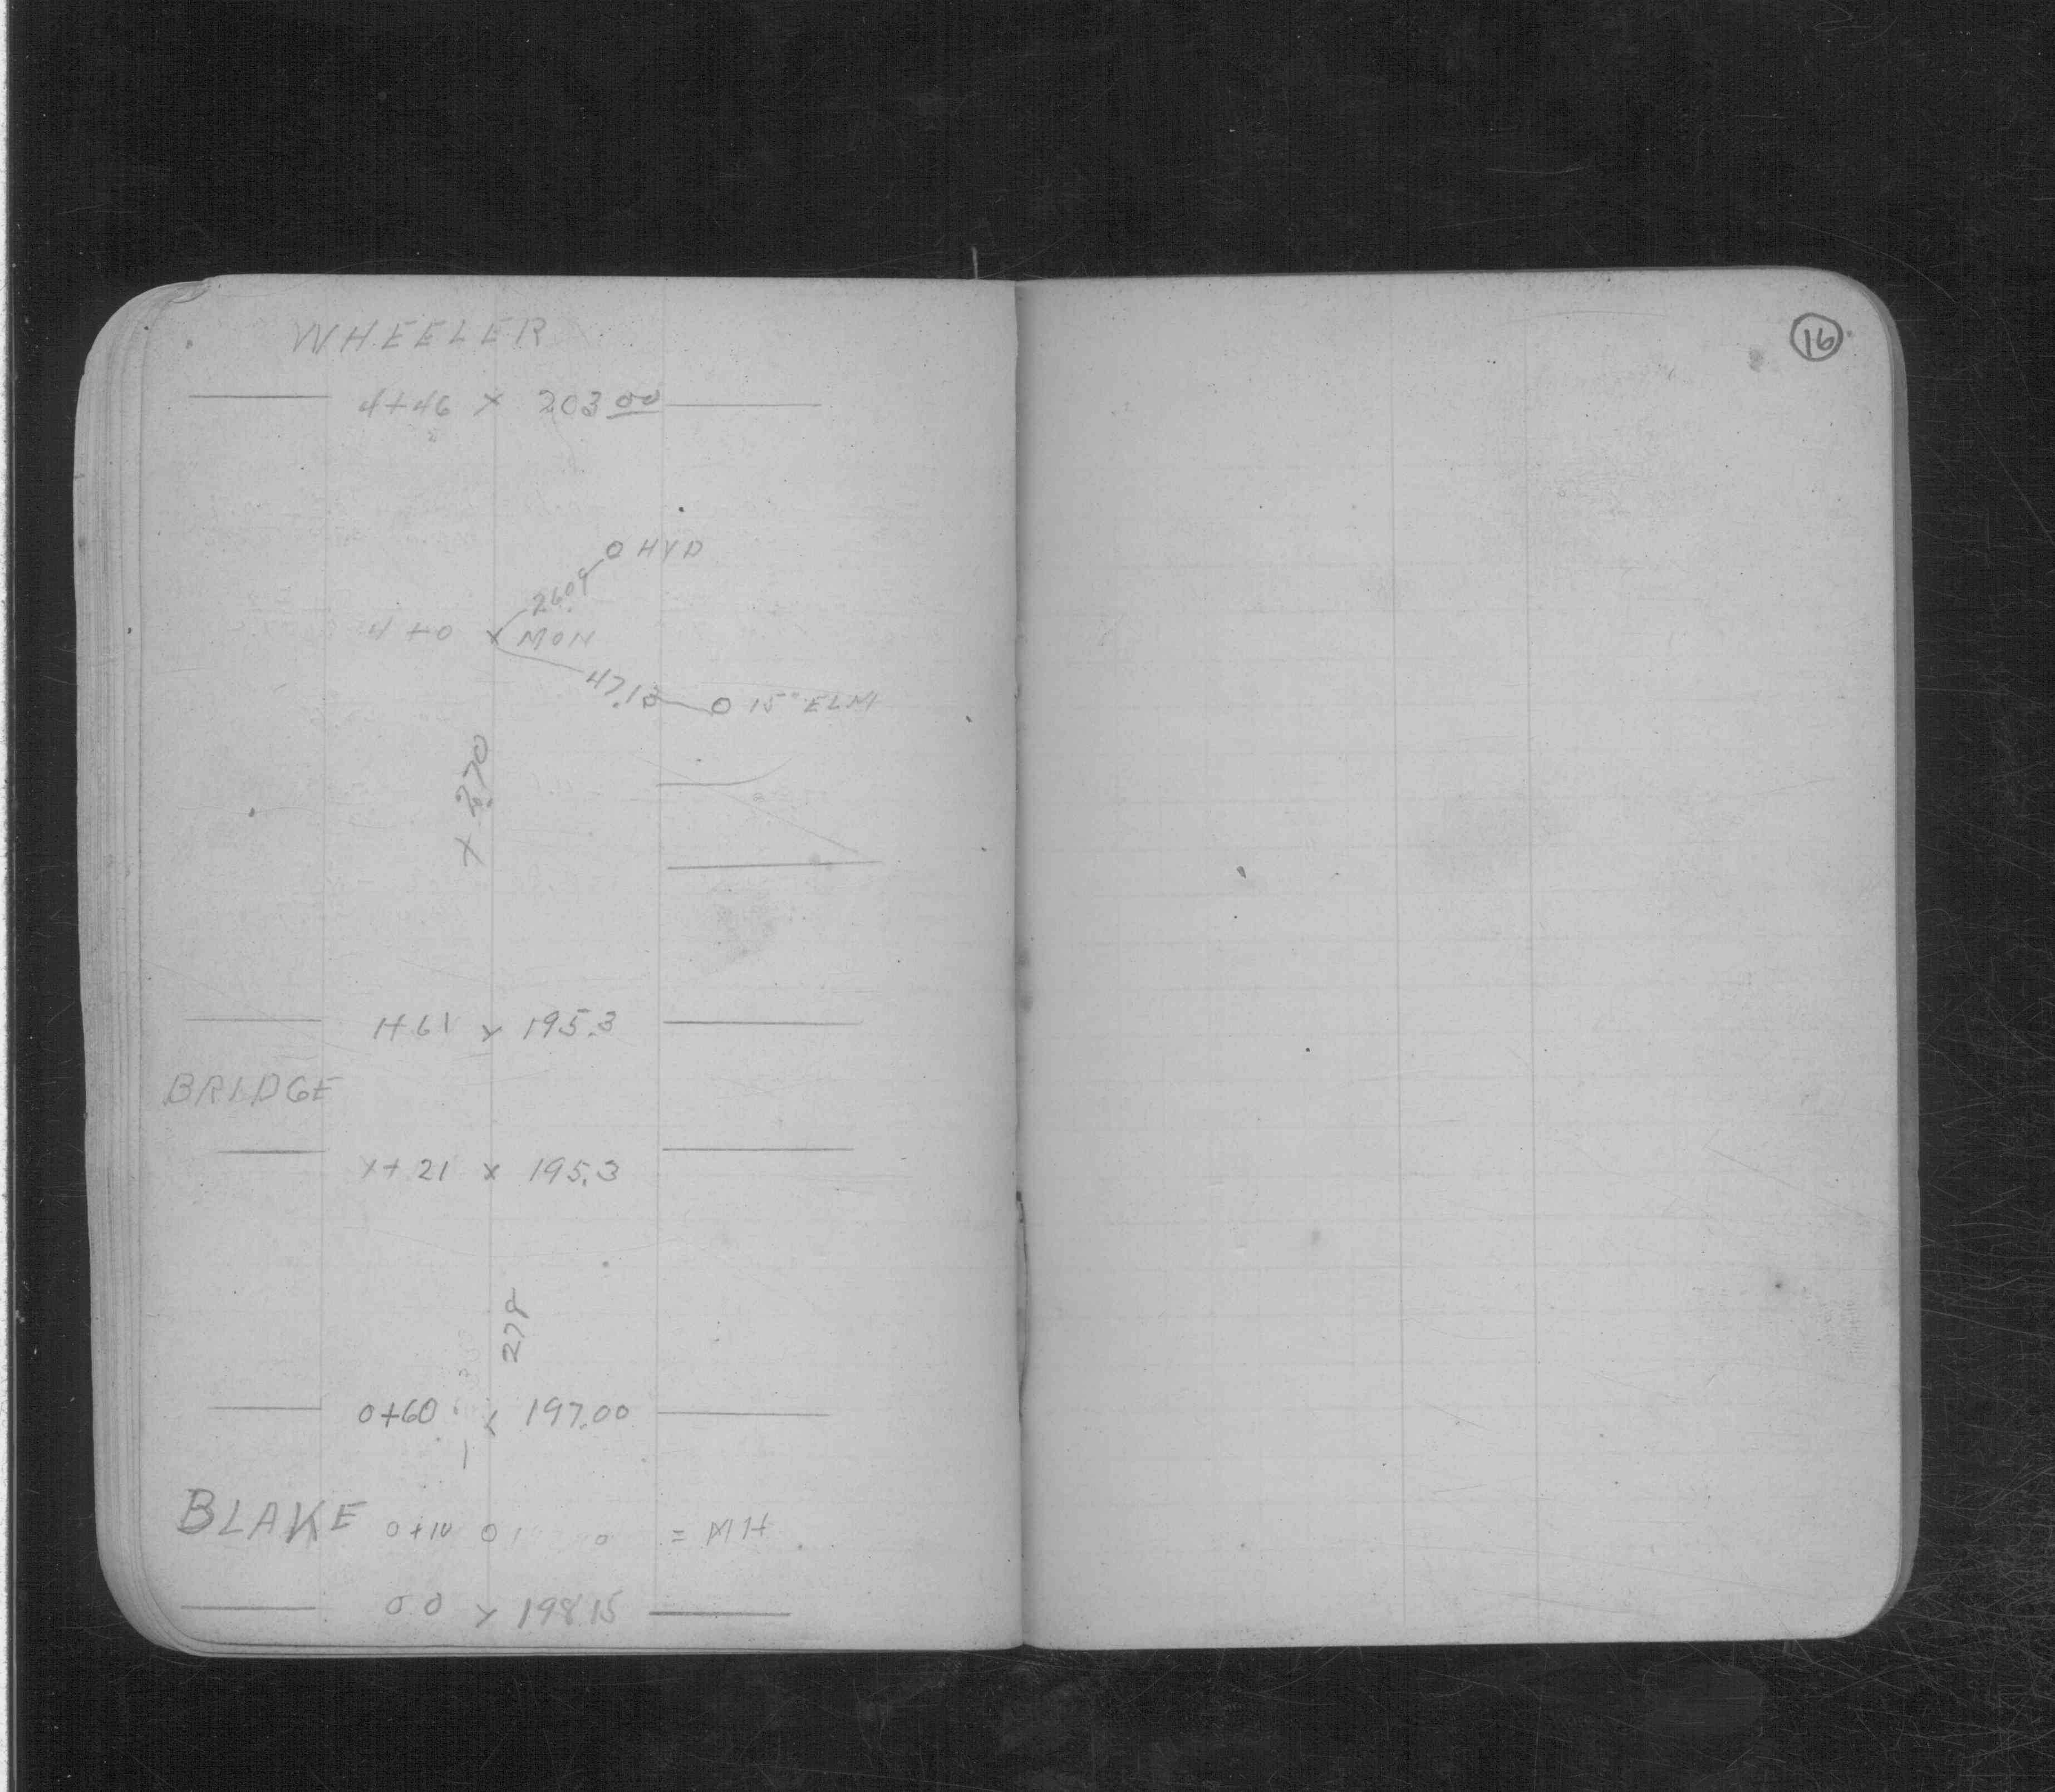 WHEELER
16
4+46 x 203 00
O HYD
26.09
4+0 x MON
47.13 O 15" ELM
x 2.70
1+61 x 195.3
BRIDGE
1+21 x 195.3
278
0+60 x 197.00
BLAKE 0+10 O = MH
0.0 x 198.15